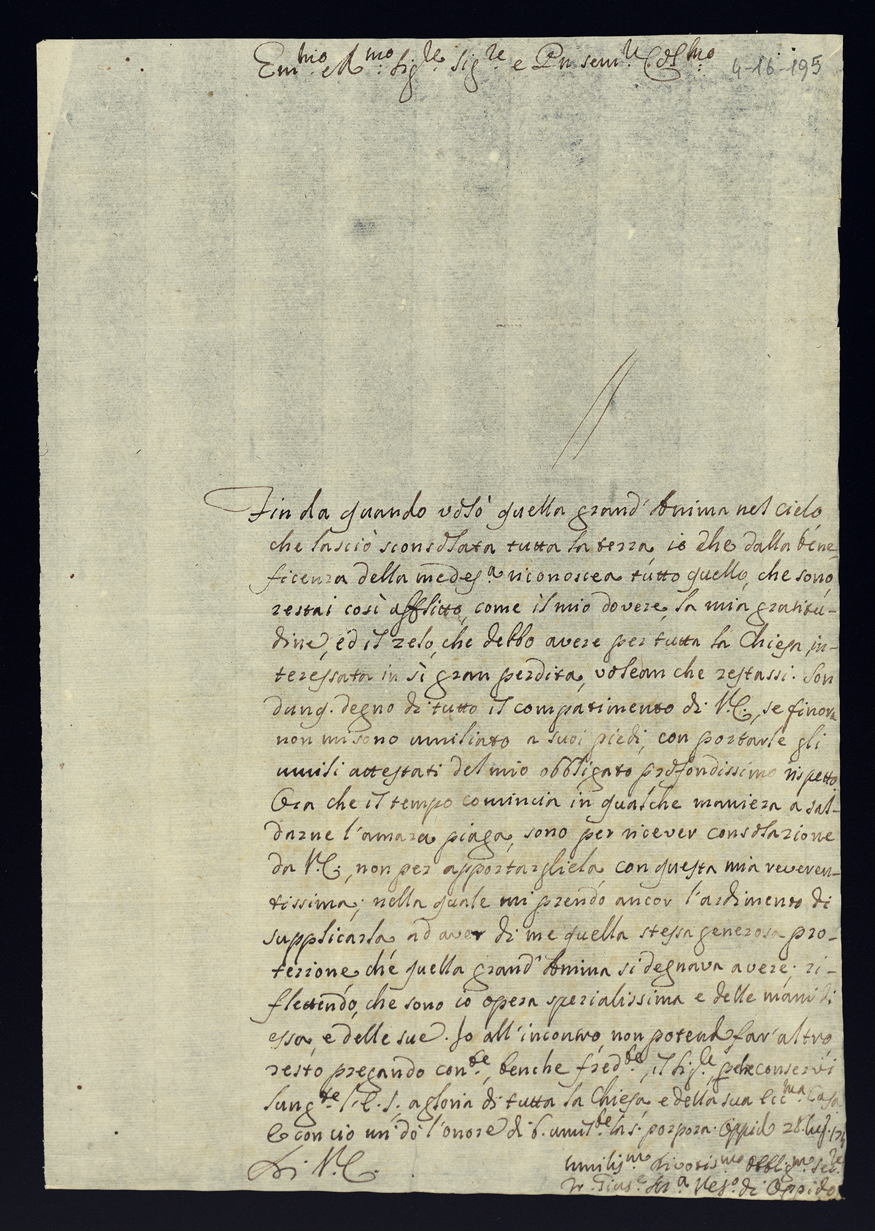 Em.mo e R.mo Sig.re Sig.re e Pn sem.re Col.mo
4-16-195
Fin da quando volò quella grand' Anima nel cielo
che lasciò sconsolata tutta la terra, io che dalla bene-
ficenza della medeg.a riconoscea tutto quello, che sono,
restai così afflitto, come il mio dovere, la mia gratitu-
dine, ed il zelo, che debbo avere per tutta la Chiesa in-
teressata in sì gran perdita, volean che restassi. Son
dunq. degno di tutto il compatimento di V.E., se finora
non mi sono umiliato a suoi piedi, con portarle gli
umili attestati del mio obbligato profondissimo rispetto
Ora che il tempo comincia in qualche maniera a sal-
darne l'amara piaga, sono per ricever consolazione
da V.E., non per apportargliela, con questa mia reveren-
tissima; nella quale mi prendo ancor l'ardimento di
supplicarla ad aver di me quella stessa generosa pro-
tezione, ché quella grand' Anima si degnava avere; ri-
flettendo, che sono io opera spezialissima e delle mani di
essa, e delle sue. Io all'incontro, non potend far' altro
resto pregando con.te, benche fred.te, il Sig.re, pche conservi
lung.te l'E.S. a gloria di tutta la Chiesa, e della sua Ecc.ma Casa
e con cio un do l'onore di b. umil.te la s. porpora. Oppid 28
Di V.E.
Umilis.mo Divotis.mo Obblig.mo Se.re
Gius. M.a Ves.o di Oppido